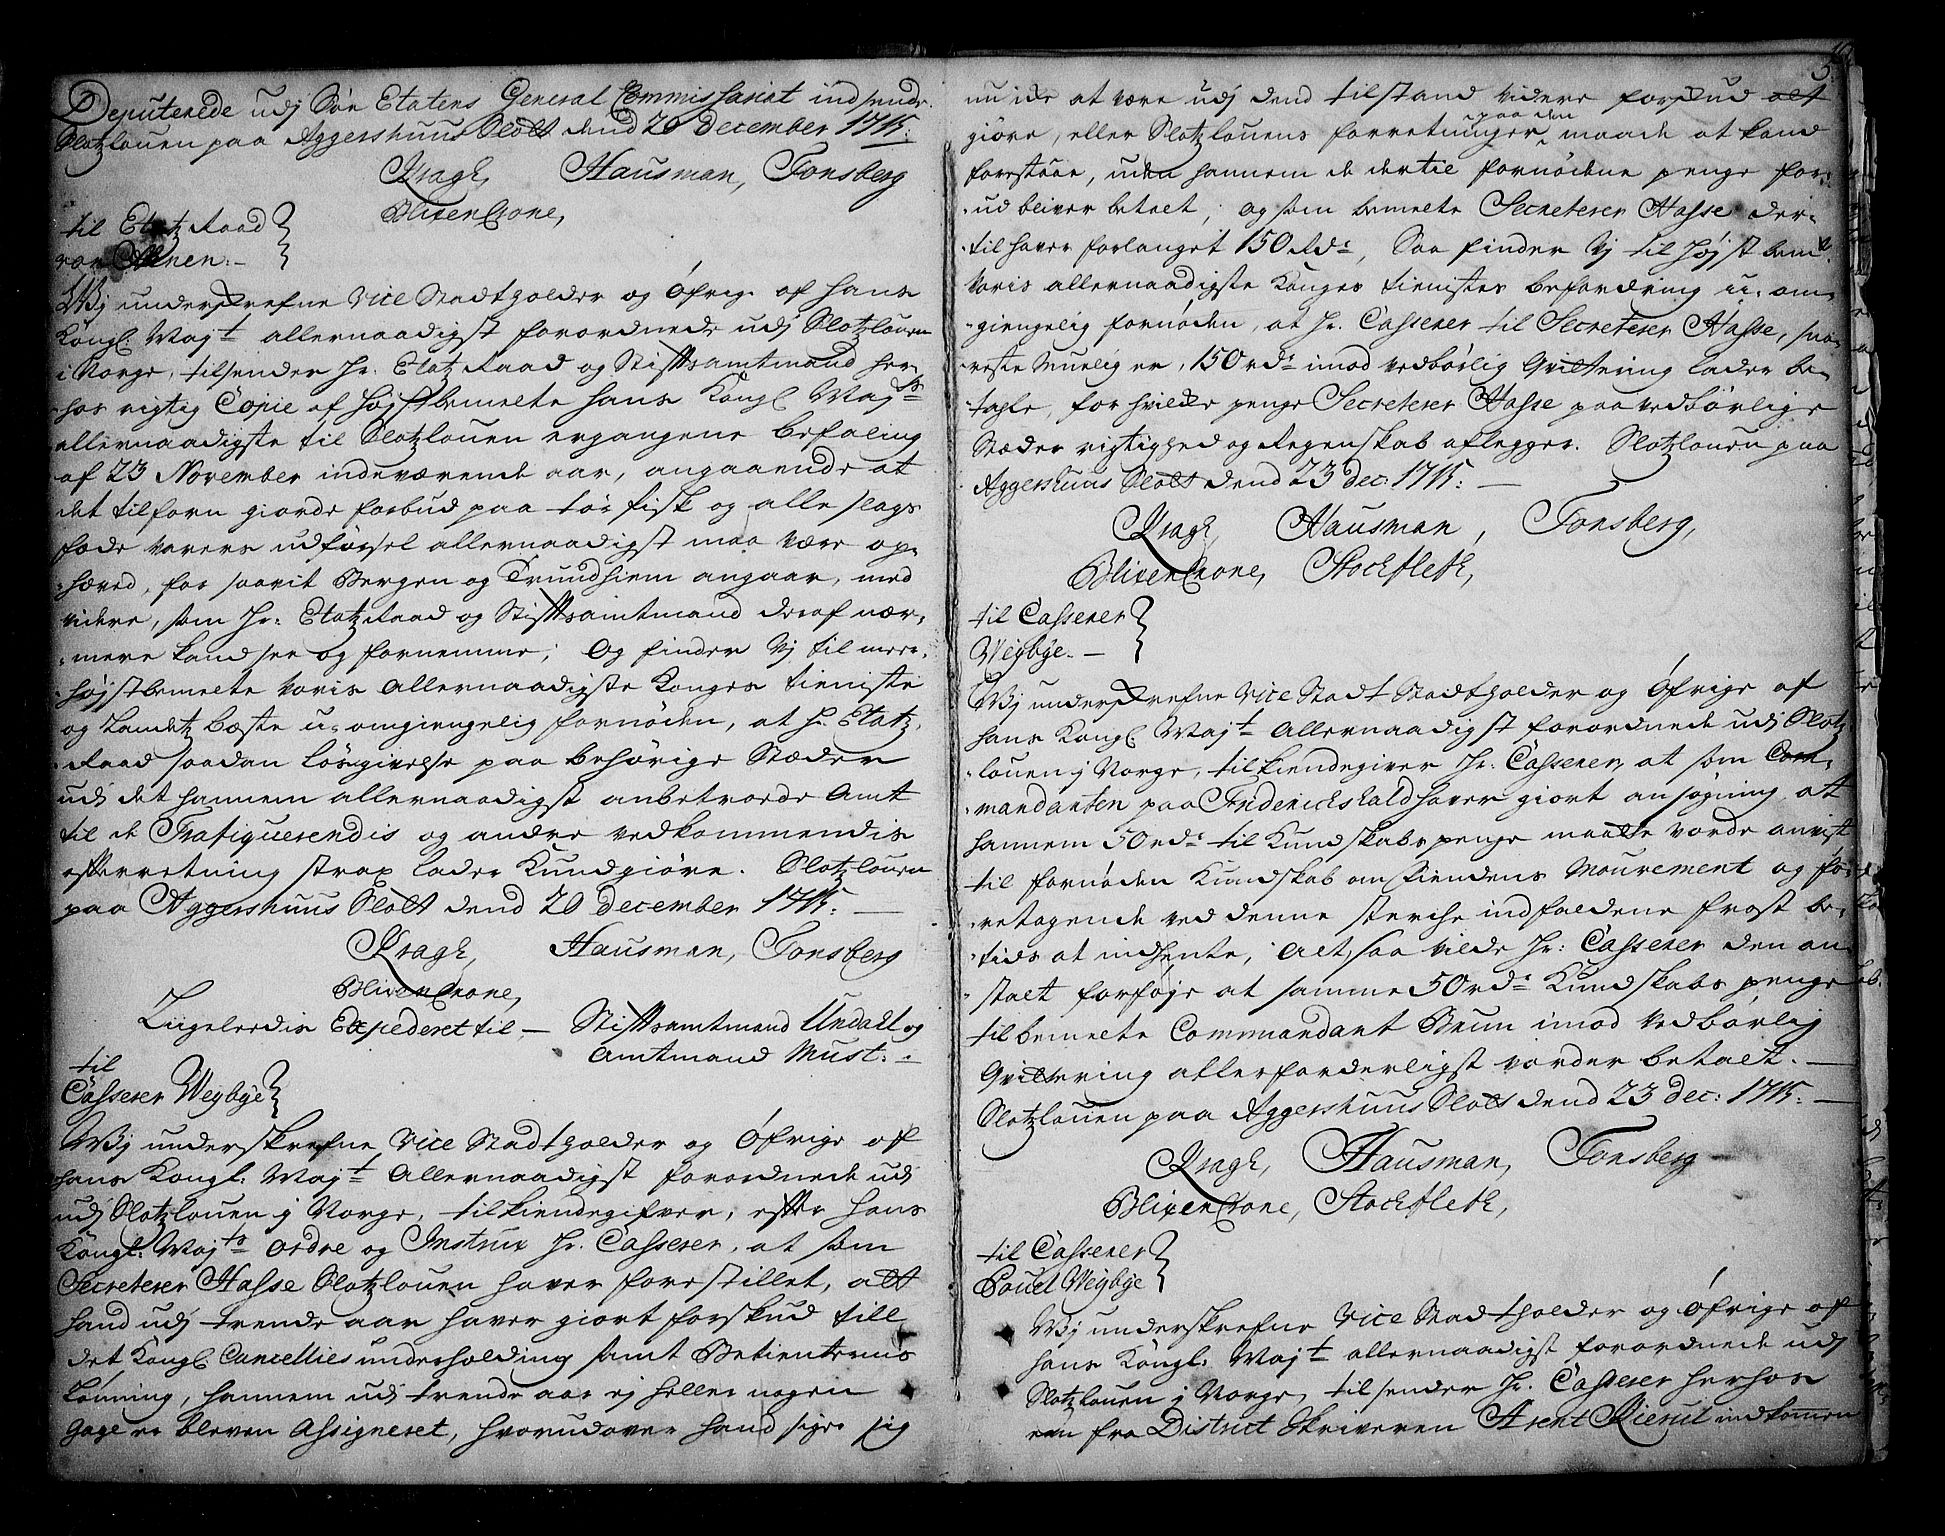 Deputerede udj Söe Etatens General Commissariat indsende.
Slotzlouen paa Aggershuus Slott dend 20 december 1715:
Kragh, Hausman, Tonsberg
BlixenCrone,
til Etatz Raad
von Ahnen:-
Wj underskrefne Vice Stadtholder og Öfrig: af hans
Kongl: Maj:t allernaadigst forordnede udj Slotzlouen
i Norge, tilsender Hr: Etatz Raad og Stiftsamtmand her-
hos rigtig Copie af höjstbemelte hans Kongl Maj:ts
allernaadigste til Slotzlouen ergangene befaling
af 23 November indeværende aar, angaaende at
det tilforn giorde forbud paa tör fisk og alle slags
föde varers udförsel allernaadigst maa være op-
hæved, for saavit Bergen og Trundhiem angaar, med
videre, som Hr: Etatz Raad og Stiftsamtmand deraf nær-
mere kand see og fornemme; Og finder Vj til mere-
höjstbemelte Voris Allernaadigste Konges tieniste
og Landetz bæste u-omgiengelig fornöden, at Hr: Etatz
Raad saadan lösgivelse paa behörige Stæder
udj det hannem allernaadigst anbetroede Amt
til de Trafiquerendis og andre vedkommendis
efterretning strax lader Kundgiöre. Slotzlouen
paa Aggershuus Slott dend 20 december 1715:
Kragh, Hausman, Tonsberg
BlixenCrone,
Ligeledis Expederet til - Stiftsamtmand Undahl og
Amtmand Must:-
til
Casserer Weybye
Wj underskrefne Vice Stadtholder og Öfrige af
hans Kongl: Maj:t Allernaadigst forordnede udj
udj Slotzlouen j Norge, tilkiendegifver, efter hans
Kongl: Maj:ts ordre og Instrux Hr: Casserer, at som
Secreterer Hasse Slotzlouen haver forestillet, att
hand udj trende aar haver giort forskud till
det Kongl Cancellies underholding samt Betienternis
Lönning, hannem udj trende aar ej heller nogen
Gage er bleven Assigneret, hvorudover hand siger sig
5
nu icke at være udj dend tilstand videre forskud alt
giöre, eller Slotzlouens forretninger paa den maade at kand
forestaae, uden hannem de dertil fornödene penge for-
ud bliver betalt; og som bemelte Secreterer Hasse der-
til haver forlanget 150 Rdr, Saa finder Vj til Höjst bemte
Voris allernaadigste Konges tienistes befordring u-om-
giengelig fornöden, at Hr. Casserer til Secreterer Hasse, sna-
reste mueligt er, 150 rdr imod vedbörlig Qvittering lader be-
tahle, for hvilcke penge Secreterer Hasse paa vedbörlige
Stæder rigtighed og Regenskab aflegger. Slotzlouen paa
Aggershuus Slott dend 23 dec: 1715: -
Kragh, Hausman, Tonsberg,
BlixenCrone, Stockfleth,
til Casserer
Weybye. -
Wj underskrefne Vice Stadt Stadtholder og Öfrige af
hans Kongl Maj:t Allernaadigst forordnede udj Slotz
louen j Norge, tilkiendegiver Hr: Casserer, at som Com-
mandanten paa Friderickshald haver giort ansögning at
hannem 50 rdr til Kundskabs penge maatte vorde anvist
til fornöden Kundskab om Fiendens Mouvement og fo-
retagende ved denne sterche indfaldene frost be-
tids at indhente, Alt saa vilde Hr: Casserer den an-
stalt forföje at samme 50 rdr Kundskabs penge
til bemelte Commandant Brun imod Vedbörlig
Qvittering allerforderligst vorder betalt. -
Slotzlouen paa Aggershuus Slott dend 23 dec: 1715: -
Kragh, Hausman, Tonsberg
BlixenCrone, Stockfleth,
til Casserer
Pouel Weybye
Wj underskrefne Vice Stadtholder og Öfrige af
hans Kongl: Maj:t allernaadigst forordnede udj
Slotzlouen j Norge, tilsender Hr: Casserer herhos
een fra District Skriveren Arent Kierul indkommen